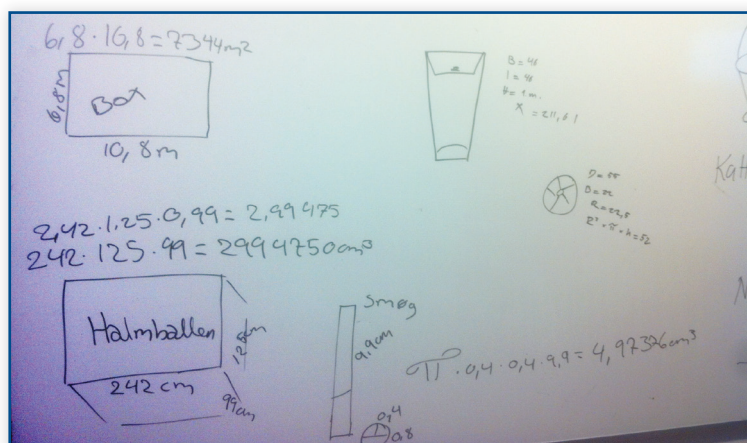 6,8·10,8=7344m²
6,8m
Box
10,8m
B=48
l=48
h=1m.
X=211,61
2,42·1,25·0,99=2,99475
242·125·99=2994750cm³
Halmballen
125cm
242cm
99cm
Smøg
9,9cm
0,4
0,8
π·0,4·0,4·9,9=4,97376cm³
Kat